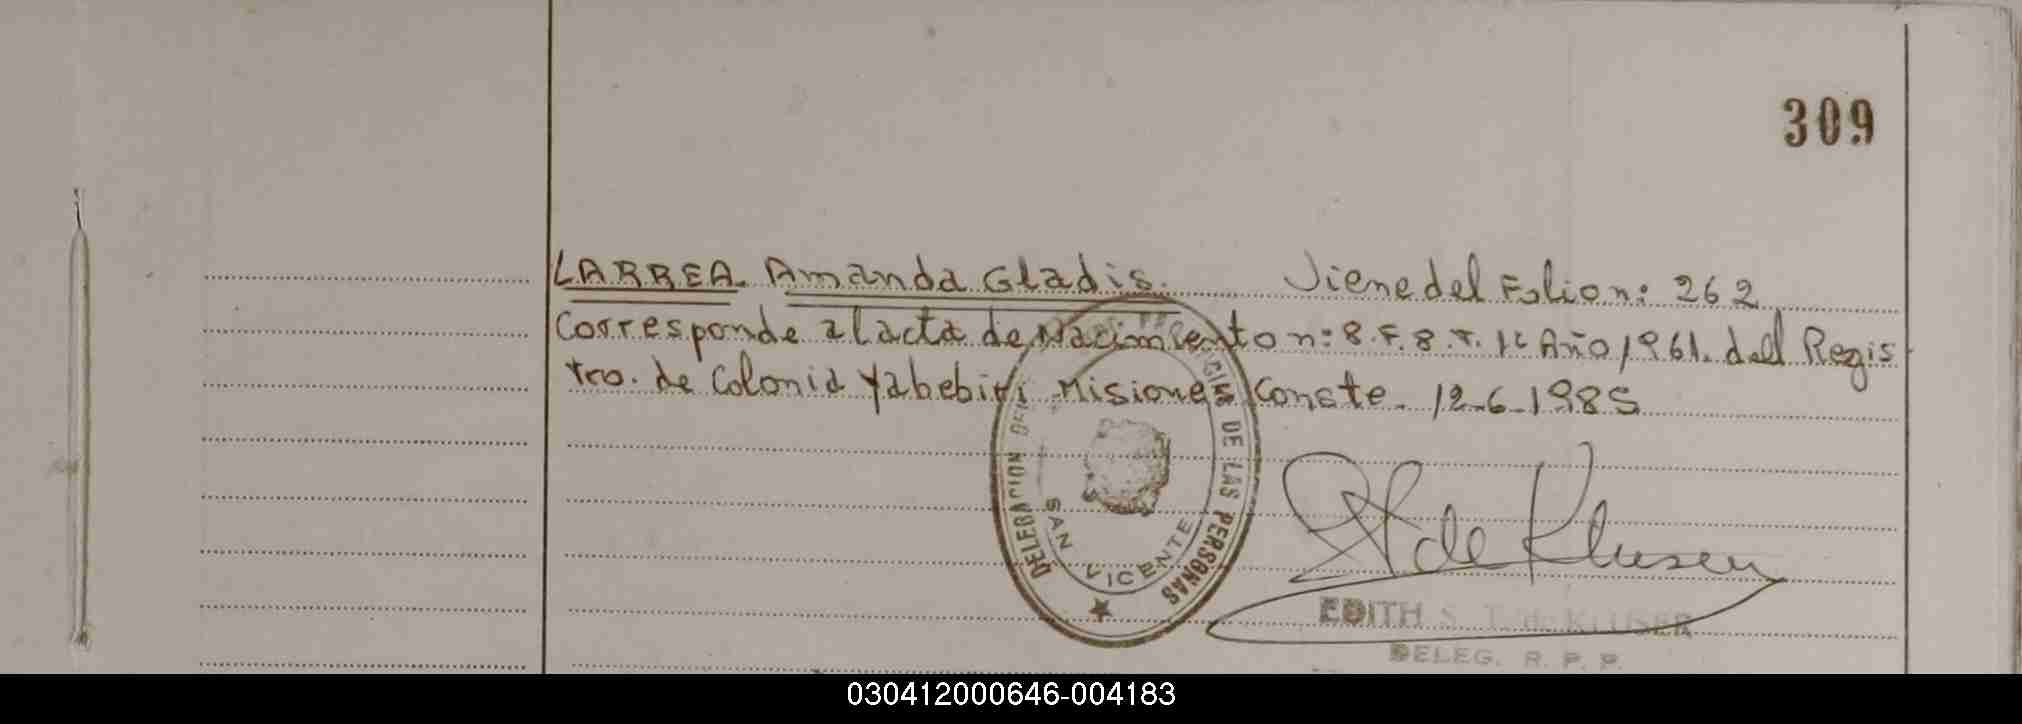 309
LARREA Amanda Gladis. Viene del Folio n: 262
Corresponde al acta de Nacimiento n: 8. F. 8. T. 1º Año 1961. del Regis
tro. de Colonia Yabebiri Misiones Conste. 12-6-1985
DELEGACION DE LAS PERSONAS
SAN VICENTE
de Kluser
EDITH S. T. de KLUSER
DELEG. R. P. P.
030412000646-004183